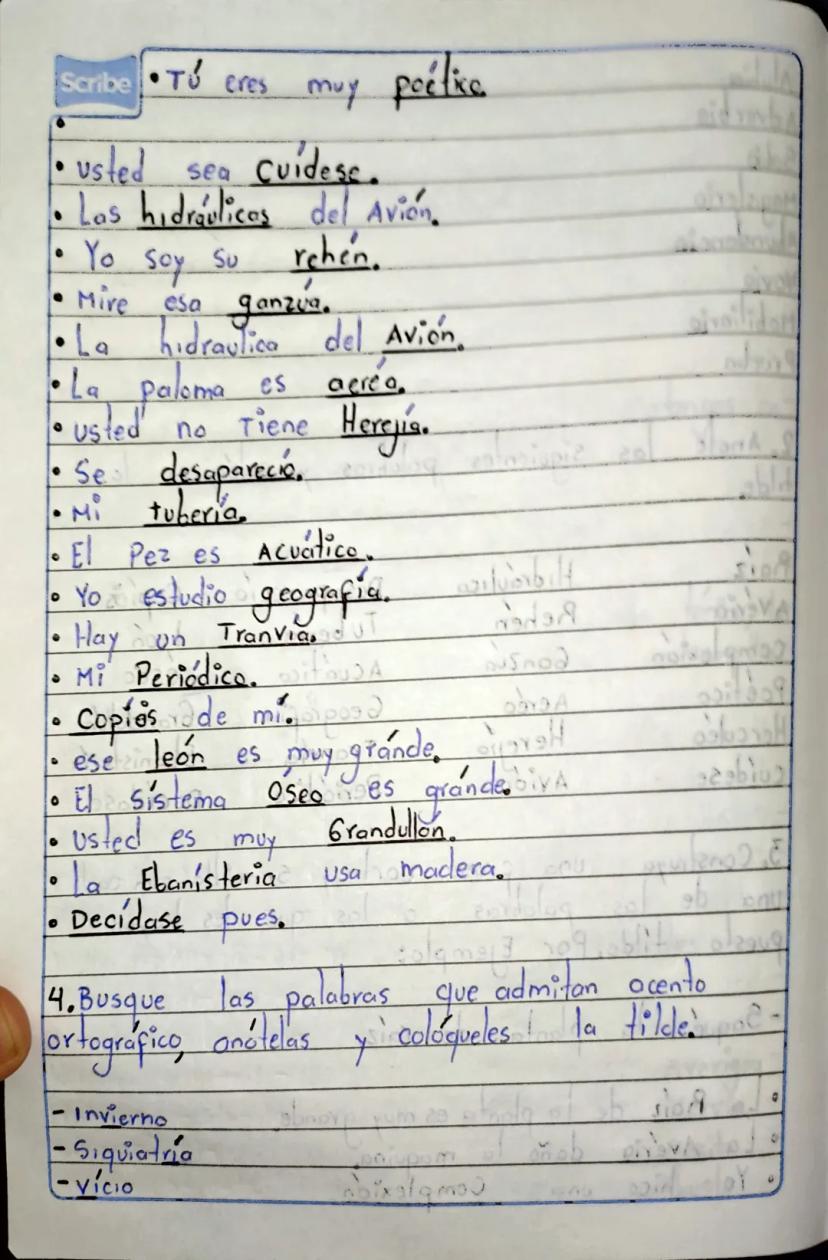 Scribe
• Tú eres muy poético.
•
• usted sea cuídese.
• Las hidráulicas del Avión.
• Yo soy su rehén.
• Mire esa ganzúa.
• La hidraulica del Avión.
• La paloma es aeréa.
• usted no Tiene Herejía.
• Se desapareció.
• Mi tubería.
• El Pez es Acuático.
• Yo estudio geografía.
• Hay un Tranvía.
• Mi Periódico.
• Copíos de mí.
• ese león es muy gránde.
• El sístema Óseo es gránde.
• Usted es muy Grandullón.
• La Ebanísteria usa madera.
• Decídase pues.
4. Busque las palabras que admitan acento
ortográfico, anótelas y colóqueles la tilde.
- Invierno
- Siquiatría
- Vício